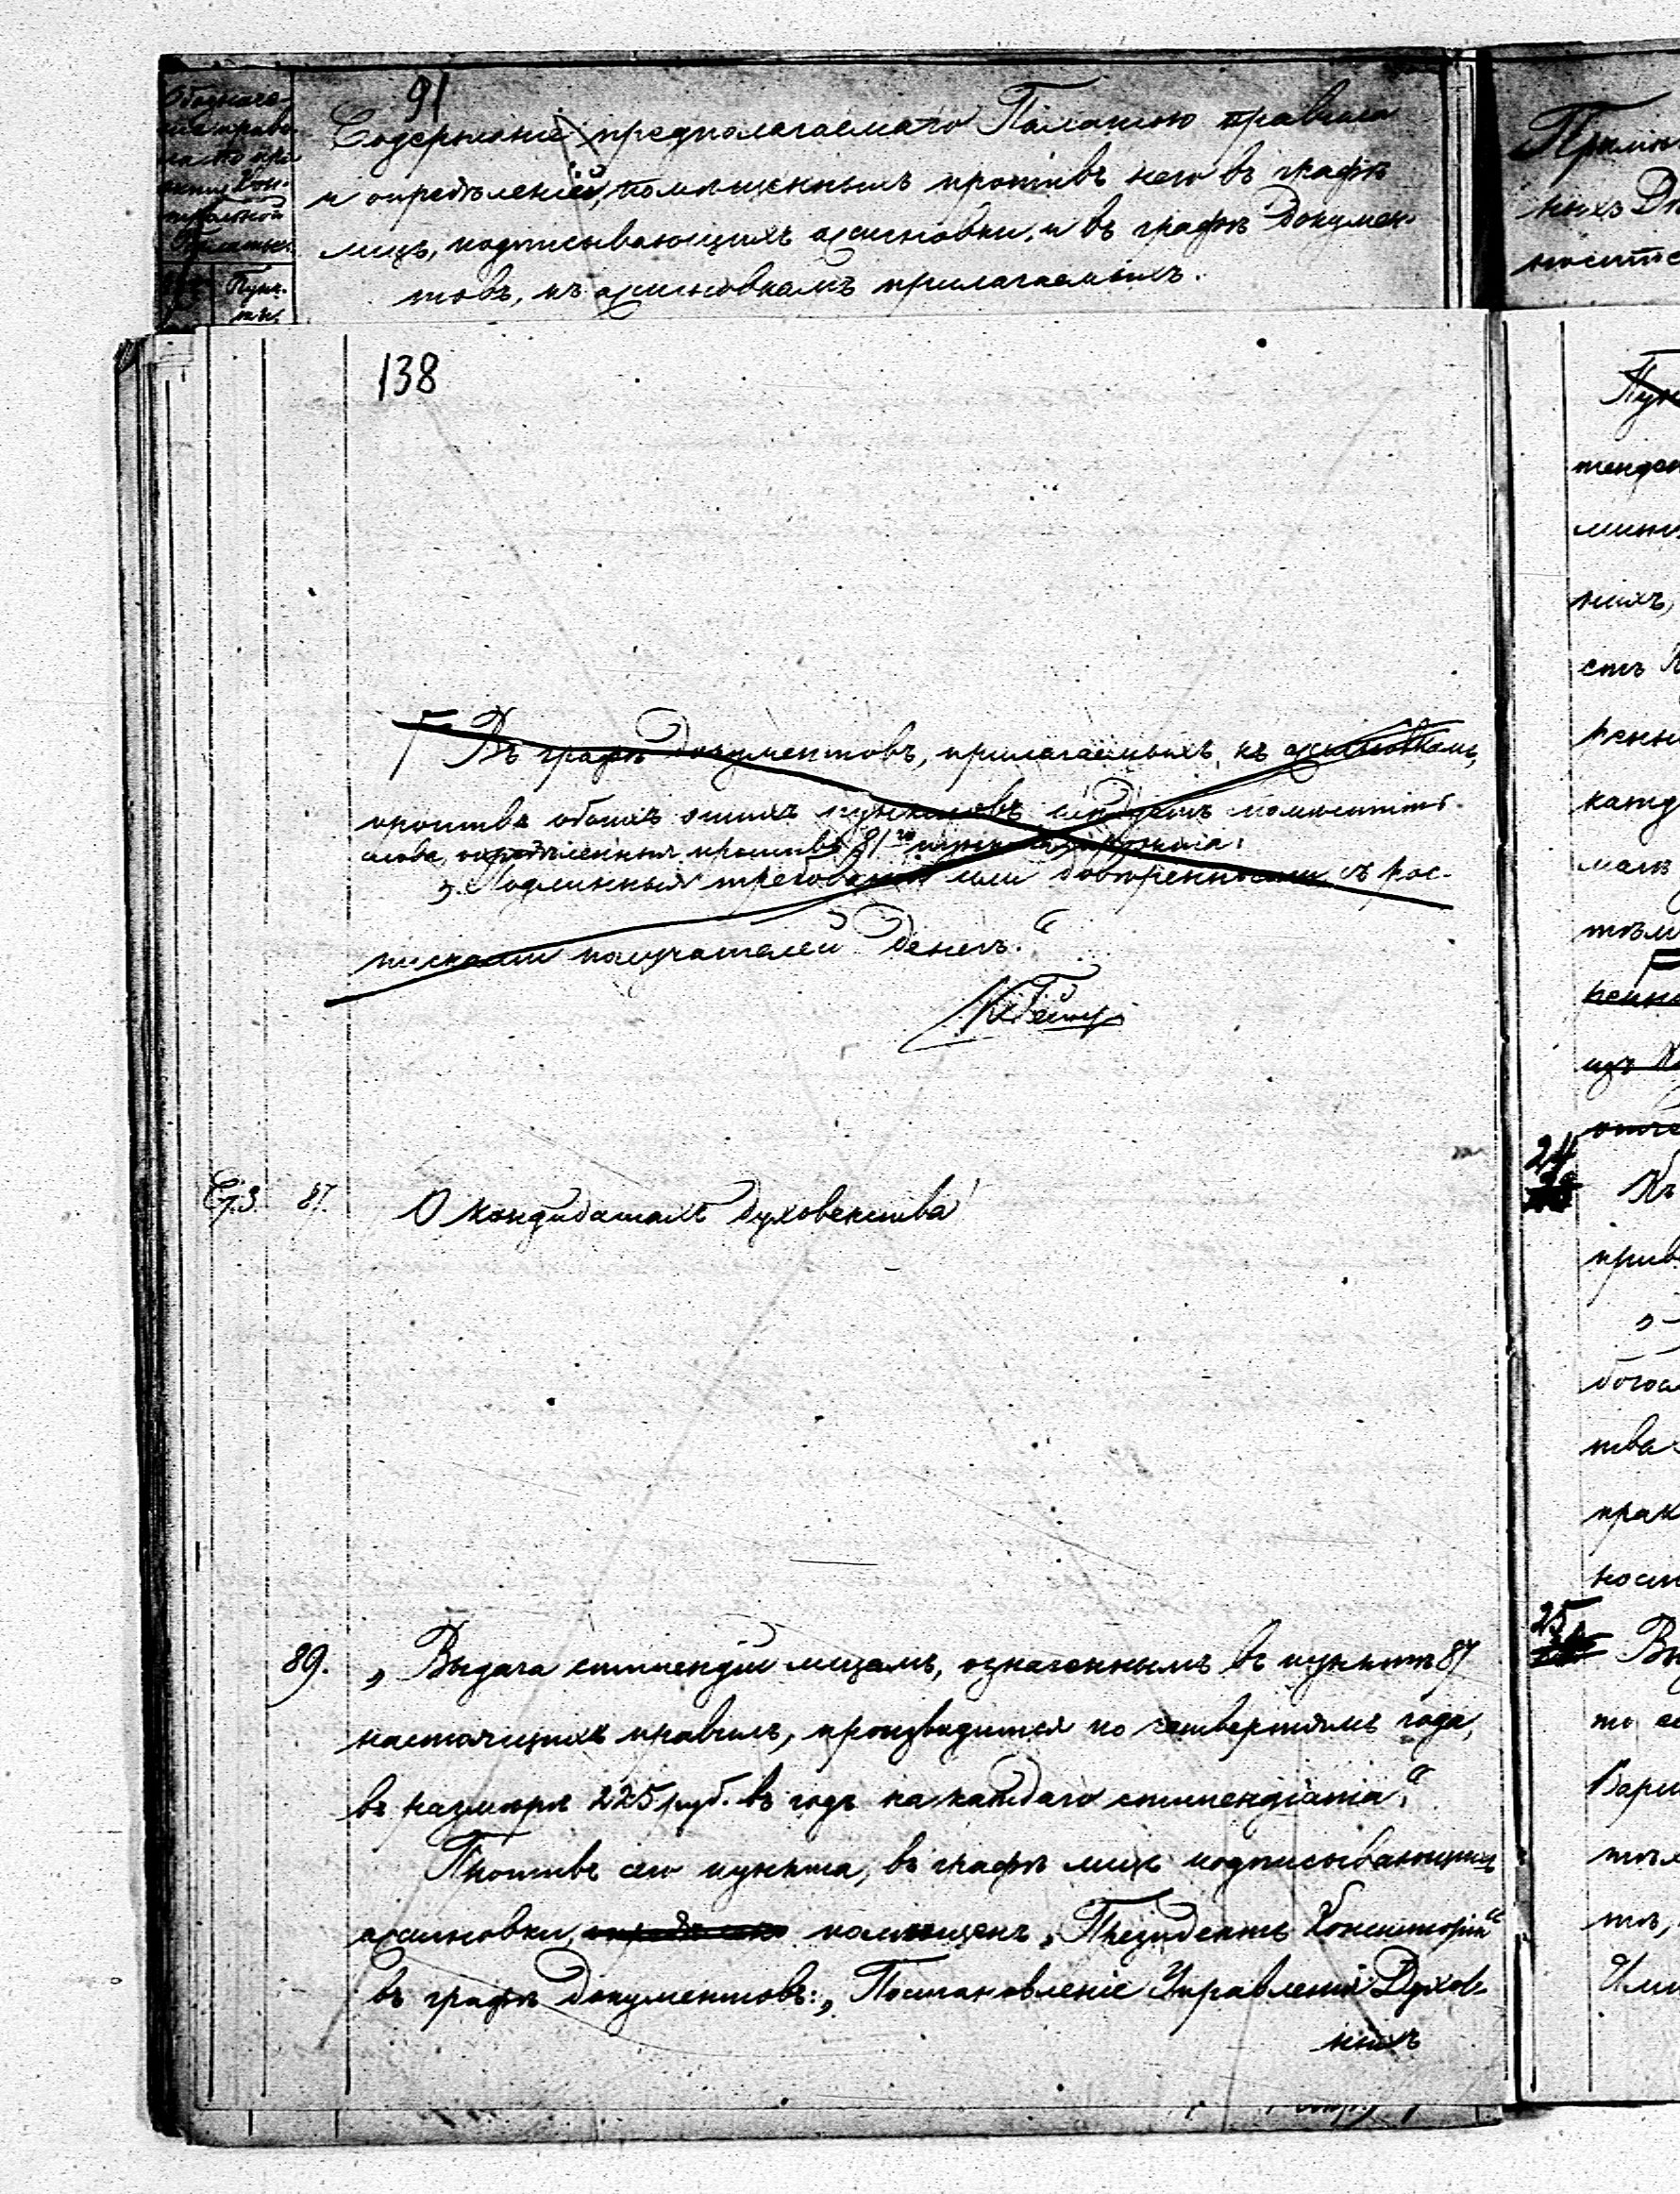 91
Обозначе-
ніе прави-
ла по про-
екту Кон-
трольной
Палаты.
Пунк-
ты.
Содержаніе предполагаемаго Палатою правила
и опредѣленій, помѣщенныхъ противъ него въ графѣ
лицъ, подписывающихъ ассигновки, и въ графѣ докумен-
товъ, къ ассигновкамъ прилагаемыхъ.
138
Въ графѣ документовъ, прилагаемыхъ къ ассигновкамъ,
противъ обоихъ этихъ пунктовъ слѣдуетъ помѣстить
слова, опредѣленныя противъ 81го пункта правила:
„Подлинныя требованія или довѣренности съ рос-
писками получателей денегъ.“
Ст. 3. 87. О кандидатахъ духовенства
89. „Выдача стипендіи лицамъ, означеннымъ въ пунктѣ 87
настоящихъ правилъ, производится по четвертямъ года,
въ размѣрѣ 225 руб. въ годъ на каждаго стипендіата“.
Противъ сего пункта, въ графѣ лицъ подписывающихъ
ассигновки, помѣщенъ „Президентъ Консисторіи“
въ графѣ документовъ: „Постановленіе Управленія Духов-
ныхъ
Примѣ
ныхъ
Пун
тенден
нихъ,
ст.
кажд
24
Къ
прив
бого
прак
25
Вы
Варш